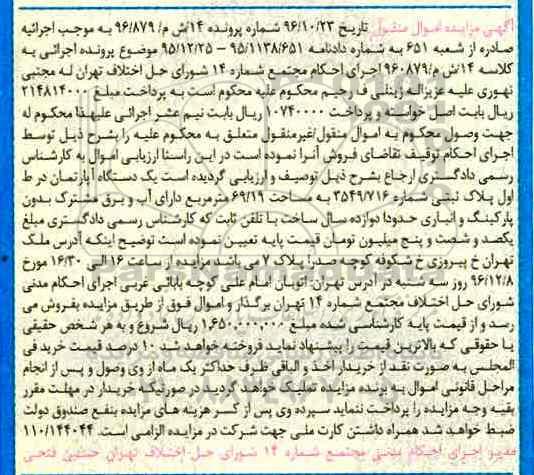 آگهی مزایده اموال منقول تاریخ ۹۶/۱۰/۲۳ شماره پرونده ۱۴/ش م/ ۹۶/۸۷۹ به موجب اجرائیه
صادره از شعبه ۶۵۱ به شماره دادنامه ۹۵/۱۱۳۸/۶۵۱ – ۹۵/۱۲/۲۵ موضوع پرونده اجرائی به
کلاسه ۱۴/ش م/۹۶۰۸۷۹ اجرای احکام مجتمع شماره ۱۴ شورای حل اختلاف تهران له مجتبی
نهوری علیه عزیزاله زینلی ف رحیم محکوم علیه محکوم است به پرداخت مبلغ ۲۱۴۸۱۴۰۰۰
ریال بابت اصل خواسته و پرداخت ۱۰۷۴۰۰۰۰ ریال بابت نیم عشر اجرائی علیهذا محکوم له
جهت وصول محکوم به اموال منقول/غیرمنقول متعلق به محکوم علیه را بشرح ذیل توسط
اجرای احکام توقیف تقاضای فروش آنرا نموده است در این راستا ارزیابی اموال به کارشناس
رسمی دادگستری ارجاع بشرح ذیل توصیف و ارزیابی گردیده است یک دستگاه آپارتمان در ط
اول پلاک ثبتی شماره ۳۵۴۹/۷۱۶ به مساحت ۶۹/۱۹ مترمربع دارای آب و برق مشترک بدون
پارکینگ و انباری حدودا دوازده سال ساخت با تلفن ثابت که کارشناس رسمی دادگستری مبلغ
یکصد و شصت و پنج میلیون تومان قیمت پایه تعیین نموده است توضیح اینکه آدرس ملک
تهران خ پیروزی خ شکوفه کوچه صدرا پلاک ۷ می باشد مزایده از ساعت ۱۶ الی ۱۶/۳۰ مورخ
۹۶/۱۲/۸ روز سه شنبه در آدرس تهران- اتوبان امام علی کوچه بابائی غربی اجرای احکام مدنی
شورای حل اختلاف مجتمع شماره ۱۴ تهران برگذار و اموال فوق از طریق مزایده بفروش می
رسد و از قیمت پایه کارشناسی شده مبلغ ۱,۶۵۰,۰۰۰,۰۰۰ ریال شروع و به هر شخص حقیقی
یا حقوقی که بالاترین قیمت را پیشنهاد نماید فروخته خواهد شد ۱۰ درصد قیمت خرید فی
المجلس به صورت نقد از خریدار اخذ و الباقی ظرف حداکثر یک ماه از وی وصول و پس از انجام
مراحل قانونی اموال به برنده مزایده تملیک خواهد گردید در صورتیکه خریدار در مهلت مقرر
بقیه وجه مزایده را پرداخت ننماید سپرده وی پس از کسر هزینه های مزایده بنفع صندوق دولت
ضبط خواهد شد همراه داشتن کارت ملی جهت شرکت در مزایده الزامی است. ۱۱۰/۱۴۴۰۴۴
مدیر اجرای احکام مدنی مجتمع شماره ۱۴ شورای حل اختلاف تهران حشمتی فتحی